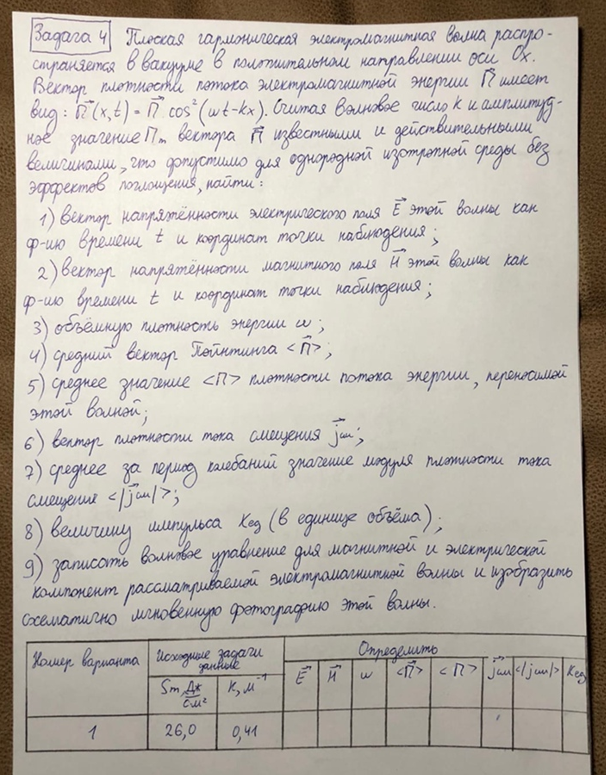 Задача 4 Плоская гармоническая электромагнитная волна распро-
страняется в вакууме в положительном направлении оси Ox.
Вектор плотности потока электромагнитной энергии П⃗ имеет
вид: П⃗(x,t) = П⃗ cos²(ωt-kx). Считая волновое число k и амплитуд-
ное значение Пm вектора П⃗ известными и действительными
величинами, что допустимо для однородной изотропной среды без
эффектов поглощения, найти:
1) вектор напряжённости электрического поля E⃗ этой волны как
ф-ию времени t и координат точки наблюдения;
2) вектор напряжённости магнитного поля H⃗ этой волны как
ф-ию времени t и координат точки наблюдения;
3) объёмную плотность энергии ω;
4) средний вектор Пойнтинга <П⃗>;
5) среднее значение <П> плотности потока энергии, переносимой
этой волной;
6) вектор плотности тока смещения j⃗см;
7) среднее за период колебаний значение модуля плотности тока
смещения <|j⃗см|>;
8) величину импульса Kед (в единице объёма);
9) записать волновое уравнение для магнитной и электрической
компонент рассматриваемой электромагнитной волны и изобразить
схематично мгновенную фотографию этой волны.
Номер варианта Исходные задачи данные Определить
Sm, Дж/с·м² k, м⁻¹ E⃗ H⃗ ω <П⃗> <П> j⃗см <|jсм|> Kед
1 26,0 0,41